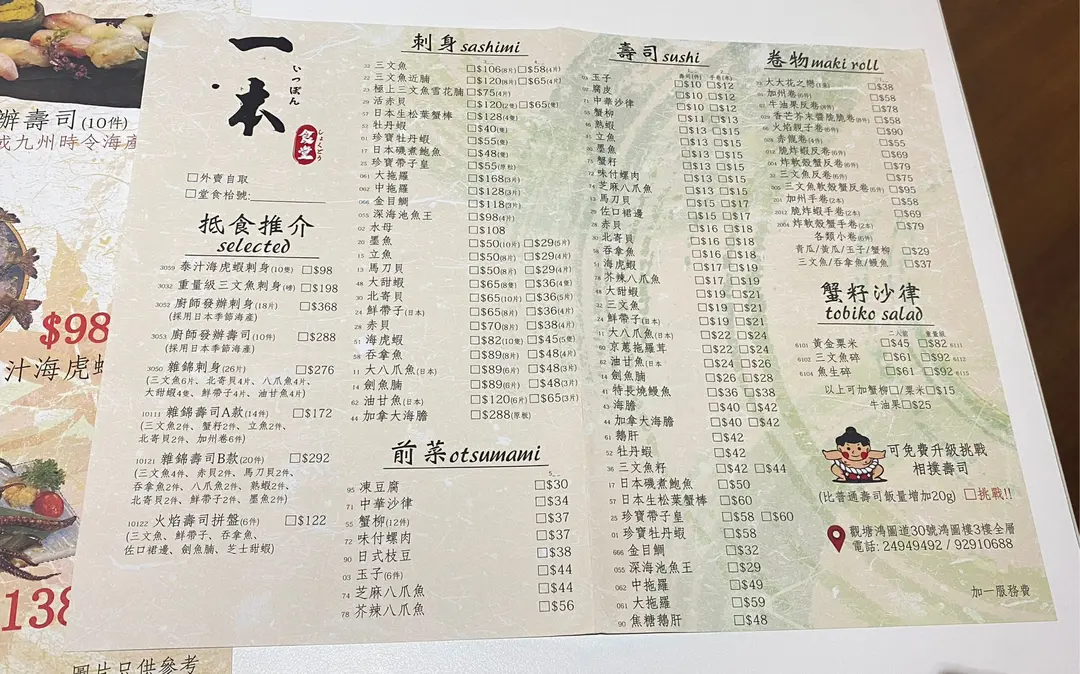 辦壽司(10件)
或九州時令海產
$98
汁海虎蝦
138
圖片只供參考
一味
いっぽん
食堂
しょくどう
□外賣自取
□堂食枱號:
抵食推介
selected
3059 泰汁海虎蝦刺身(10隻) □$98
3032 重量級三文魚刺身(磅) □$198
3052 廚師發辦刺身(18片) □$368
(採用日本季節海產)
3053 廚師發辦壽司(10件) □$288
(採用日本季節海產)
3050 雜錦刺身(26片) □$276
(三文魚6片、北寄貝4片、八爪魚4片、
大甜蝦4隻、鮮帶子4片、油甘魚4片)
10111 雜錦壽司A款(14件) □$172
(三文魚2件、蟹籽2件、立魚2件、
北寄貝2件、加州卷6件)
10121 雜錦壽司B款(20件) □$292
(三文魚4件、赤貝2件、馬刀貝2件、
吞拿魚2件、八爪魚2件、熟蝦2件、
北寄貝2件、鮮帶子2件、墨魚2件)
10122 火焰壽司拼盤(6件) □$122
(三文魚、鮮帶子、吞拿魚、
佐口裙邊、劍魚腩、芝士甜蝦)
刺身sashimi
三文魚 □$106(8片) □$58(4片)
三文魚近腩 □$120(8片) □$65(4片)
極上三文魚雪花腩 □$75(4片)
活赤貝 □$120(2隻) □$65(隻)
日本生松葉蟹棒 □$128(4隻)
牡丹蝦 □$40(隻)
珍寶牡丹蝦 □$55(隻)
日本磯煮鮑魚 □$48(隻)
珍寶帶子皇 □$55(原粒)
大拖羅 □$168(3片)
中拖羅 □$128(3片)
金目鯛 □$118(3片)
深海池魚王 □$98(4片)
水母 □$108
墨魚 □$50(10片) □$29(5片)
立魚 □$50(8片) □$29(4片)
馬刀貝 □$50(8片) □$29(4片)
大甜蝦 □$65(8隻) □$36(4隻)
北寄貝 □$65(10片) □$36(5片)
鮮帶子(日本) □$65(8片) □$36(4片)
赤貝 □$70(8片) □$38(4片)
海虎蝦 □$82(10隻) □$45(5隻)
吞拿魚 □$89(8片) □$48(4片)
大八爪魚(日本) □$89(6片) □$48(3片)
劍魚腩 □$89(6片) □$48(3片)
油甘魚(日本) □$120(6片) □$65(3片)
加拿大海膽 □$288(原板)
前菜otsumami
95 凍豆腐 □$30
71 中華沙律 □$34
55 蟹柳(12件) □$37
72 味付螺肉 □$37
90 日式枝豆 □$38
03 玉子(6件) □$44
74 芝麻八爪魚 □$44
78 芥辣八爪魚 □$56
壽司sushi
壽司(件) 手卷(本)
玉子 □$10 □$12
腐皮 □$10 □$12
中華沙律 □$10 □$12
蟹柳 □$11 □$13
熟蝦 □$13 □$15
立魚 □$13 □$15
墨魚 □$13 □$15
蟹籽 □$13 □$15
味付螺肉 □$13 □$15
芝麻八爪魚 □$13 □$15
馬刀貝 □$15 □$17
佐口裙邊 □$15 □$17
赤貝 □$16 □$18
北寄貝 □$16 □$18
吞拿魚 □$16 □$18
海虎蝦 □$17 □$19
芥辣八爪魚 □$17 □$19
大甜蝦 □$19 □$21
三文魚 □$19 □$21
鮮帶子(日本) □$19 □$21
大八爪魚(日本) □$22 □$24
京蔥拖羅茸 □$22 □$24
油甘魚(日本) □$24 □$26
劍魚腩 □$26 □$28
特長燒鰻魚 □$36 □$38
海膽 □$40 □$42
加拿大海膽 □$40 □$42
鵝肝 □$42
牡丹蝦 □$42
三文魚籽 □$42 □$44
日本磯煮鮑魚 □$50
日本生松葉蟹棒 □$60
珍寶帶子皇 □$58 □$60
珍寶牡丹蝦 □$58
金目鯛 □$32
深海池魚王 □$29
中拖羅 □$49
大拖羅 □$59
焦糖鵝肝 □$48
卷物maki roll
大大花之戀(1隻) □$38
加州卷(6件) □$58
牛油果反卷(8件) □$78
香芒芥末醬脆脆卷(8件) □$58
火焰親子卷(6件) □$90
赤龍卷(4件) □$55
脆炸蝦反卷(6件) □$69
炸軟殼蟹反卷(6件) □$79
三文魚反卷(6件) □$75
三文魚軟殼蟹反卷(6件) □$95
加州手卷(2本) □$58
脆炸蝦手卷(2本) □$69
炸軟殼蟹手卷(2本) □$79
各類小卷(6件)
青瓜/黃瓜/玉子/蟹柳 □$29
三文魚/吞拿魚/鰻魚 □$37
蟹籽沙律
tobiko salad
二人前 重量級
6101 黃金粟米 □$45 □$82 6111
6102 三文魚碎 □$61 □$92 6112
6104 魚生碎 □$61 □$92 6115
以上可加蟹柳□/粟米□$15
牛油果□$25
可免費升級挑戰
相撲壽司
(比普通壽司飯量增加20g) □挑戰!!
觀塘鴻圖道30號鴻圖樓3樓全層
電話: 24949492 / 92910688
加一服務費